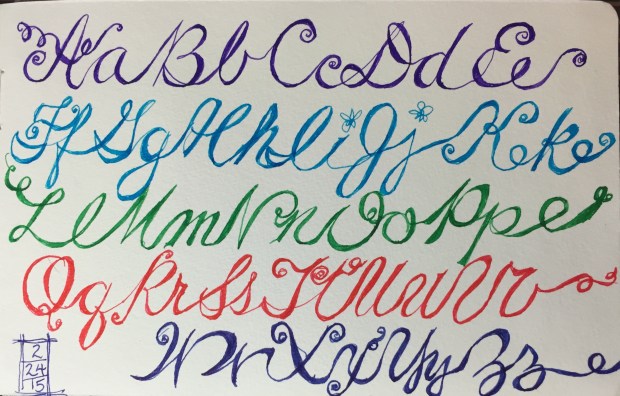 AaBbCcDdEe
FfGgHhIiJjKk
LlMmNnOoPp
QqRrSsTtUuVv
WwXxYyZz
2
24
15